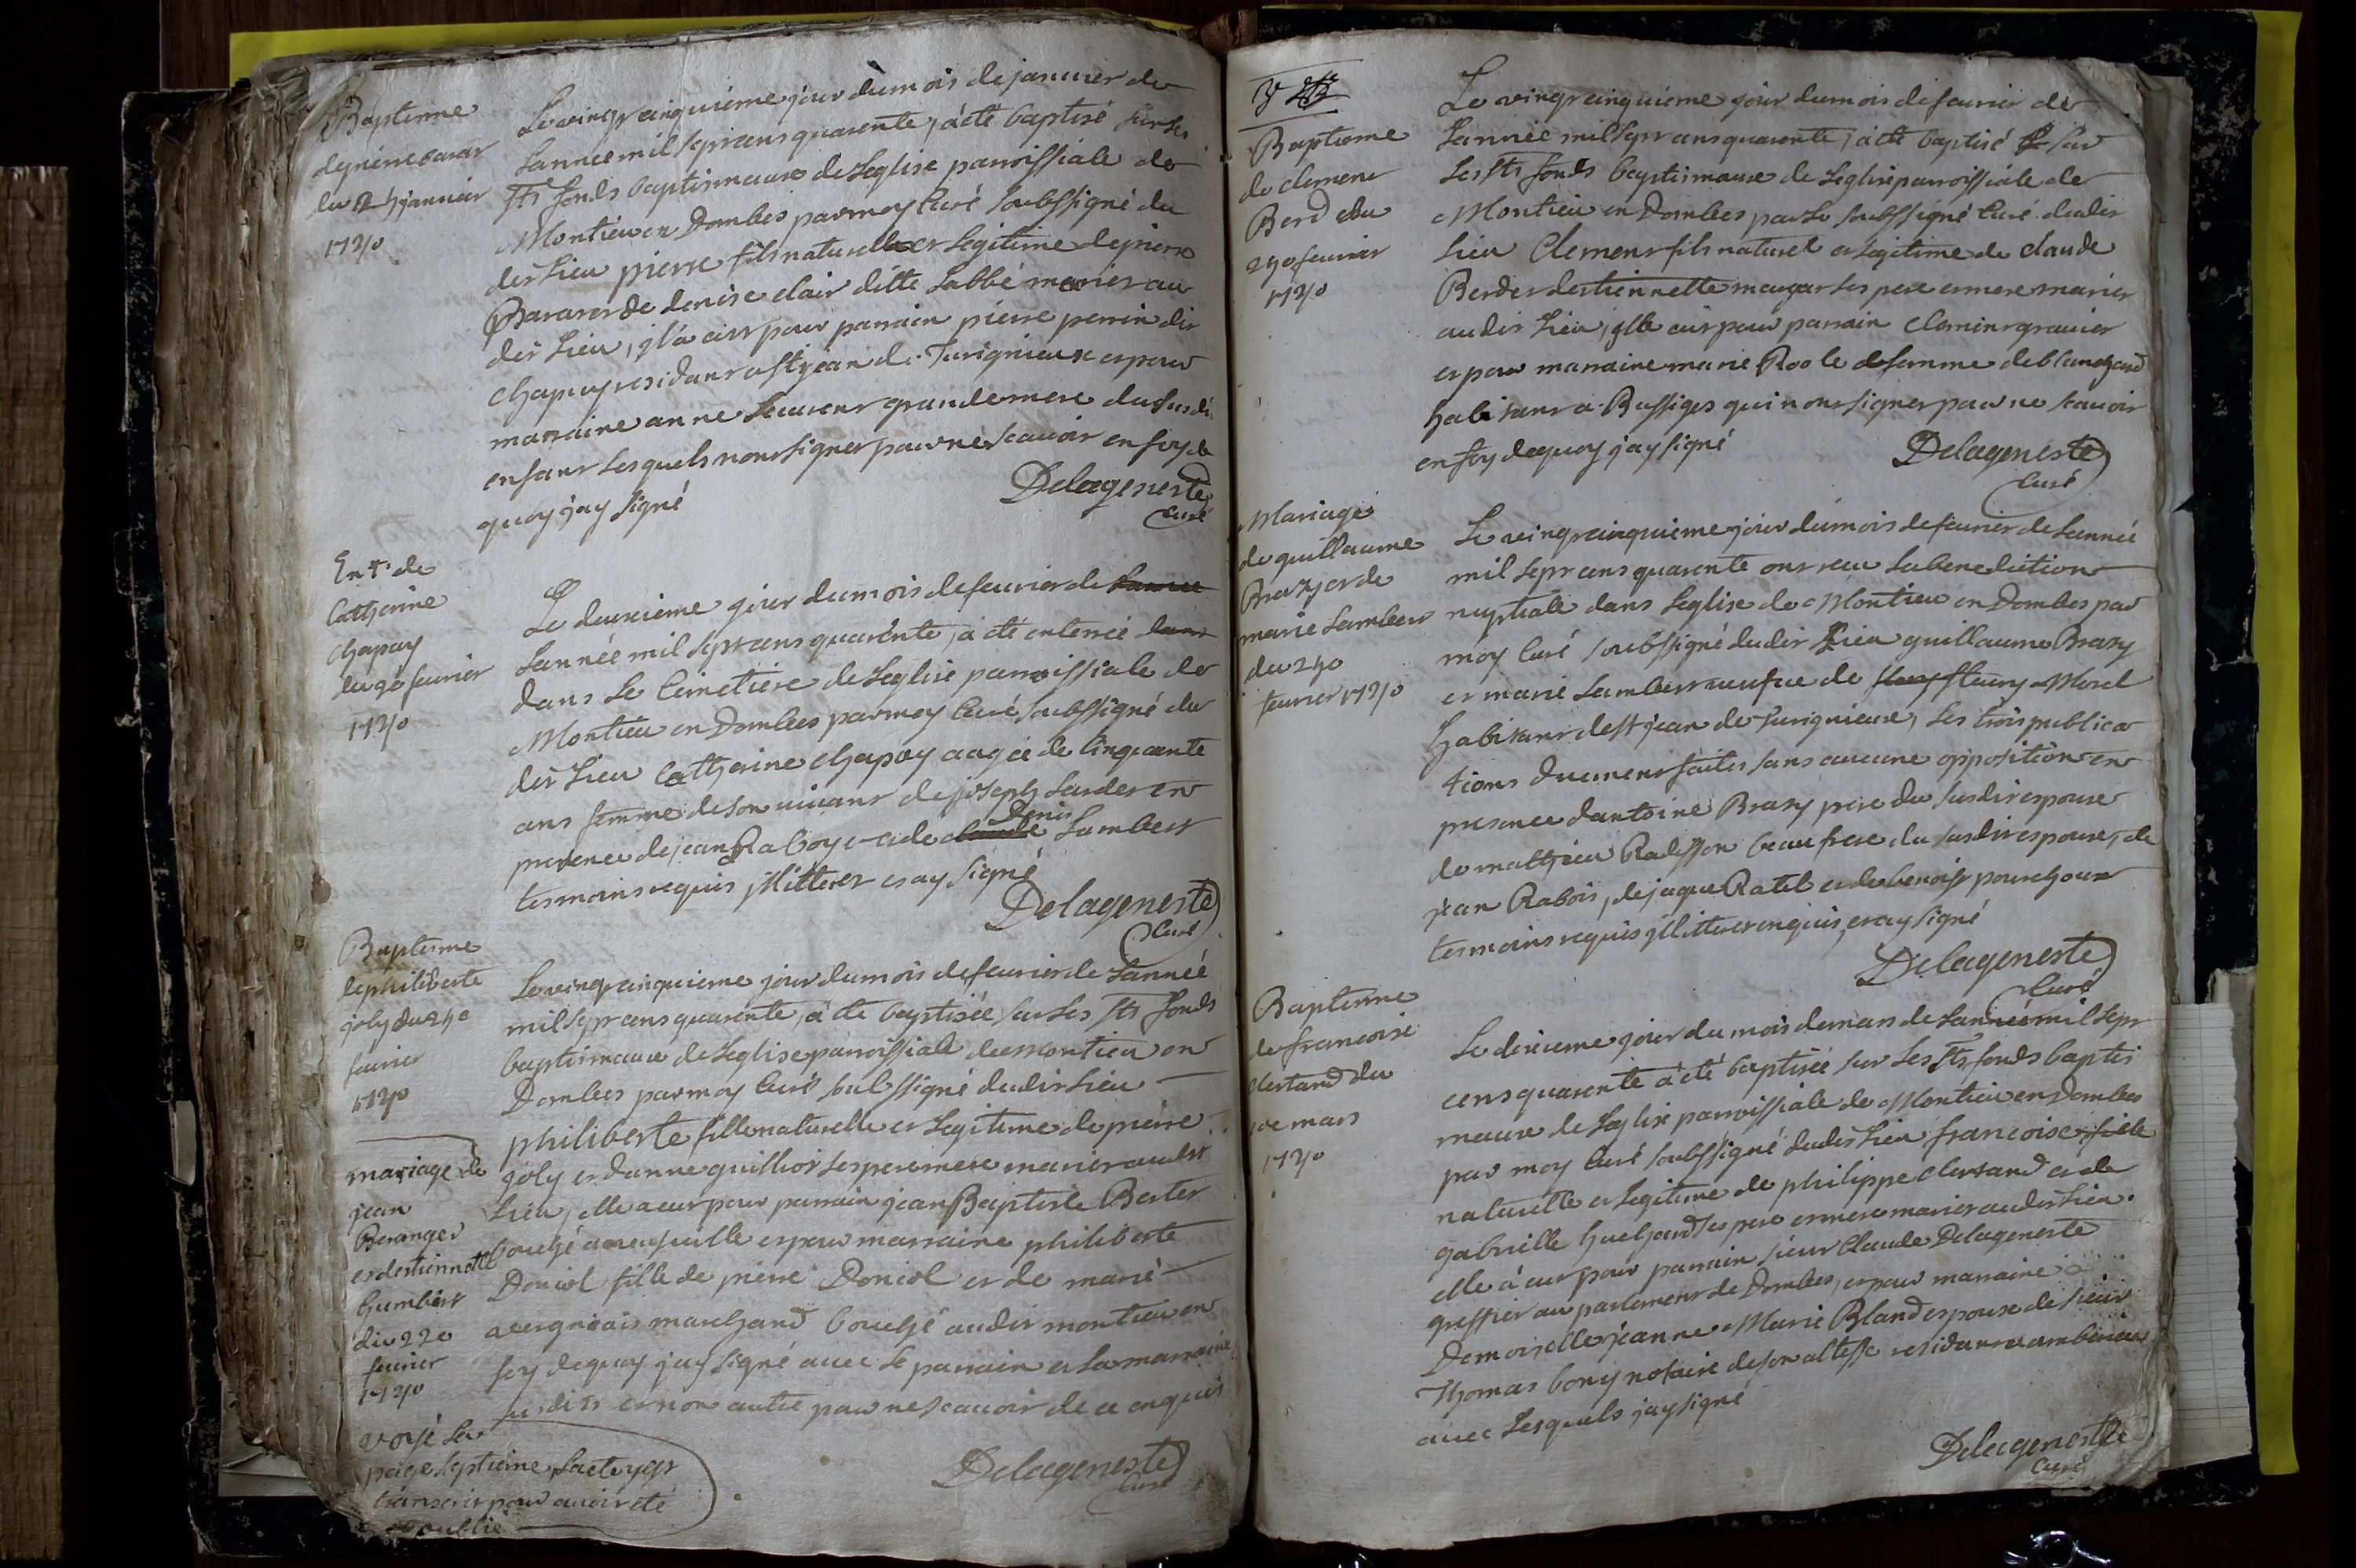 Baptesme
de pierre barar
du 25 janvier
1740
Le vingt cinquieme jour du mois de janvier de
Lannee mil sept cens quarente, a été baptisé sur les
sts fonds baptismaux de Leglise parroissiale de
Montieu en Dombes par moy Curé soubssigné du
dit Lieu pierre fils naturel et Legitime de pierre
Barar et de denise clair ditte Labbé mariés au
dit Lieu, il a eut pour parrain pierre perrin dit
Chapuy residant a st jean de Turignieux et pour
marraine anne Laurent grande mere du susdit
enfant Lesquels n'ont signer pour ne scavoir en foy de
quoy j'ay signé
Delageneste
Curé
Ent. de
Catherine
Chapuy
du 2e fevrier
1740
Le deuxieme jour du mois de fevrier de
Lannée mil sept cens quarente, a été enterrée
dans Le Cimetiere de Leglise parroissiale de
Montieu en Dombes par moy Curé soubssigné du
dit Lieu Catherine chapuy aagée de Cinquante
ans femme de son vivant de joseph Lardet en
presence de jean Raboy et de claude Denis Lambert
tesmoins requis jllitteret et ay signé
Delageneste
Curé
Baptesme
de philiberte
joly du 25e
fevrier
1740
Le vingt cinquieme jour du mois de fevrier de Lannée
mil sept cens quarente, a été baptisée sur Les sts fonds
baptismaux de Leglise parroissiale de Montieu en
Dombes par moy Curé soubssigné dudit Lieu
philiberte fille naturelle et Legitime de pierre
joly et danne guilliot ses pere mere mariés audit
Lieu, elle a eut pour parrain jean Baptiste Bertet
bouché a et pour marraine philiberte
Doniol fille de pierre Doniol et de marie
vergniais marchand bouché audit montieu en
foy dequoy j'ay signé avec Le parrain et La marraine
susdits et non autre pour ne scavoir de ce enquis
Delageneste
Curé
mariage de
jean
Beranger
et destiennette
humbert
du 22e
fevrier
1740
voyé La
page septieme Lacte y est
transcrit pour avoir eté
oublié
Baptesme
de clement
Berd du
25e fevrier
1740
Le vingt cinquieme jour du mois de fevrier de
Lannée mil sept cens quarente, a été baptisé sur
Les sts fonds baptismaux de Leglise parroissiale de
Montieu en Dombes par Le soubssigné Curé dudit
Lieu Clement fils naturel et Legitime de claude
Berd et destiennette mougar ses pere et mere mariés
audit Lieu, jlle eut pour parrain Clement gravier
et pour marraine marie Roole femme de blanchard
habitant a Bussiges qui n'ont signer pour ne scavoir
en foy dequoy j'ay signé
Delageneste
Curé
Mariage
de guillaume
Brazy et de
marie Lambert
du 25e
fevrier 1740
Le vingt cinquieme jour du mois de fevrier de Lannée
mil sept cens quarente ont receu La benediction
nuptiale dans Leglise de Montieu en Dombes par
moy Curé soubssigné dudit Lieu guillaume Brazy
et marie Lambert veufve de fleury Morel
habitant de st jean de Turignieux, Les trois publica
tions duement faites sans aucune opposition en
presence dantoine Brazy pere du susdit espoux
de matthieu Radisson beaufrere du susdit espoux, de
jean Rabois, de jaque Ratel et de benoist pourchoux
tesmoins requis jllitteret enquis, et ay signé
Delageneste
Curé
Baptesme
de francoise
clertand du
10e mars
1740
Le dixieme jour du mois de mars de Lannée mil sept
cens quarente a été baptisée sur Les sts fonds baptis
maux de Leglise parroissiale de Montieu en Dombes
par moy Curé soubssigné dudit Lieu francoise fille
naturelle et Legitime de philippe clertand et de
gabrielle huchard ses pere et mere mariés audit Lieu.
elle a eut pour parrain sieur Claude Delageneste
greffier au parlement de Dombes, et pour marraine
Demoiselle jeanne Marie Bland espouse de sieur
Thomas bony notaire de son altesse residant a amberieux
avec Lesquels j'ay signé
Delageneste
Curé